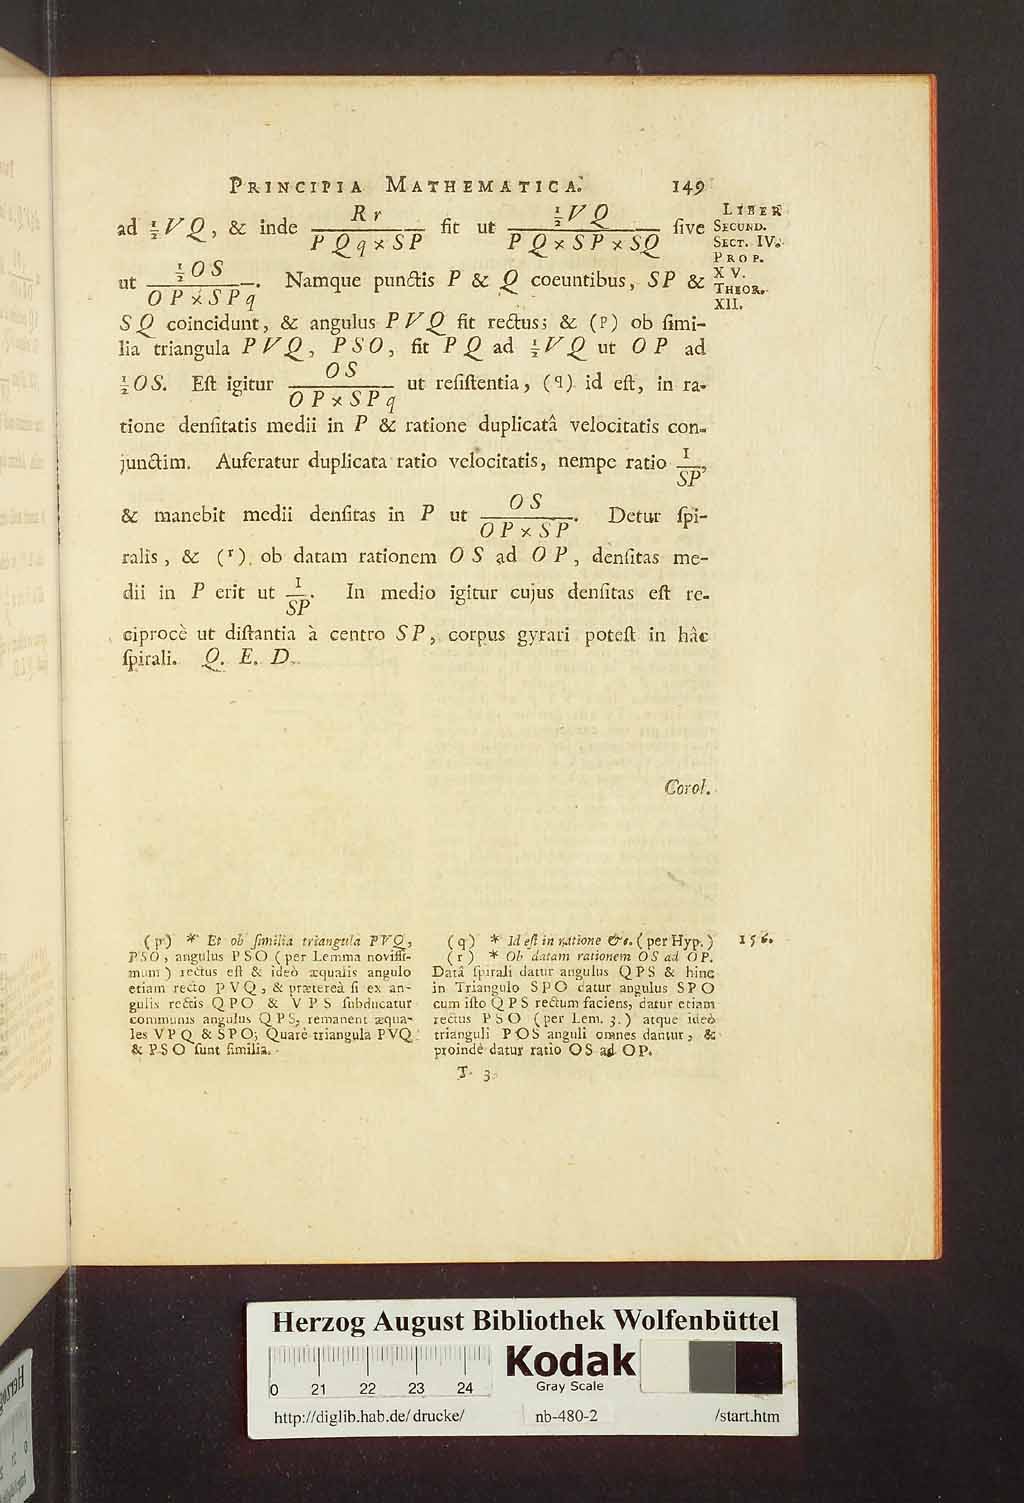 PRINCIPIA MATHEMATICA. 149
LIBER
SECUND.
SECT. IV.
PROP.
XV.
THEOR.
XII.
ad ½VQ, & inde Rr / PQq × SP fit ut ½VQ / PQ × SP × SQ ſive
ut ½OS / OP × SPq. Namque punctis P & Q coeuntibus, SP &
SQ coincidunt, & angulus PVQ fit rectus; & (p) ob ſimi-
lia triangula PVQ, PSO, fit PQ ad ½VQ ut OP ad
½OS. Eſt igitur OS / OP × SPq ut reſiſtentia, (q) id eſt, in ra-
tione denſitatis medii in P & ratione duplicatâ velocitatis con-
junctim. Auferatur duplicata ratio velocitatis, nempe ratio 1/SP,
& manebit medii denſitas in P ut OS / OP × SP. Detur ſpi-
ralis, & (r) ob datam rationem OS ad OP, denſitas me-
dii in P erit ut 1/SP. In medio igitur cujus denſitas eſt re-
ciprocè ut diſtantia à centro SP, corpus gyrari poteſt in hâc
ſpirali. Q. E. D.
Corol.
(p) * Et ob ſimilia triangula PVQ,
PSO, angulus PSO (per Lemma noviſſi-
mum) rectus eſt & ideò æqualis angulo
etiam recto PVQ, & prætereà ſi ex an-
gulis rectis QPO & VPS ſubducatur
communis angulus QPS, remanent æqua-
les VPQ & SPO; Quarè triangula PVQ
& PSO ſunt ſimilia.
(q) * Id eſt in ratione &c. (per Hyp.)
156.
(r) * Ob datam rationem OS ad OP.
Datâ ſpirali datur angulus QPS & hinc
in Triangulo SPO datur angulus SPO
cum iſto QPS rectum faciens, datur etiam
rectus PSO (per Lem. 3.) atque ideò
trianguli POS anguli omnes dantur, &
proindè datur ratio OS ad OP.
T 3
Herzog August Bibliothek Wolfenbüttel
Kodak
Gray Scale
0 21 22 23 24
http://diglib.hab.de/drucke/ nb-480-2 /start.htm